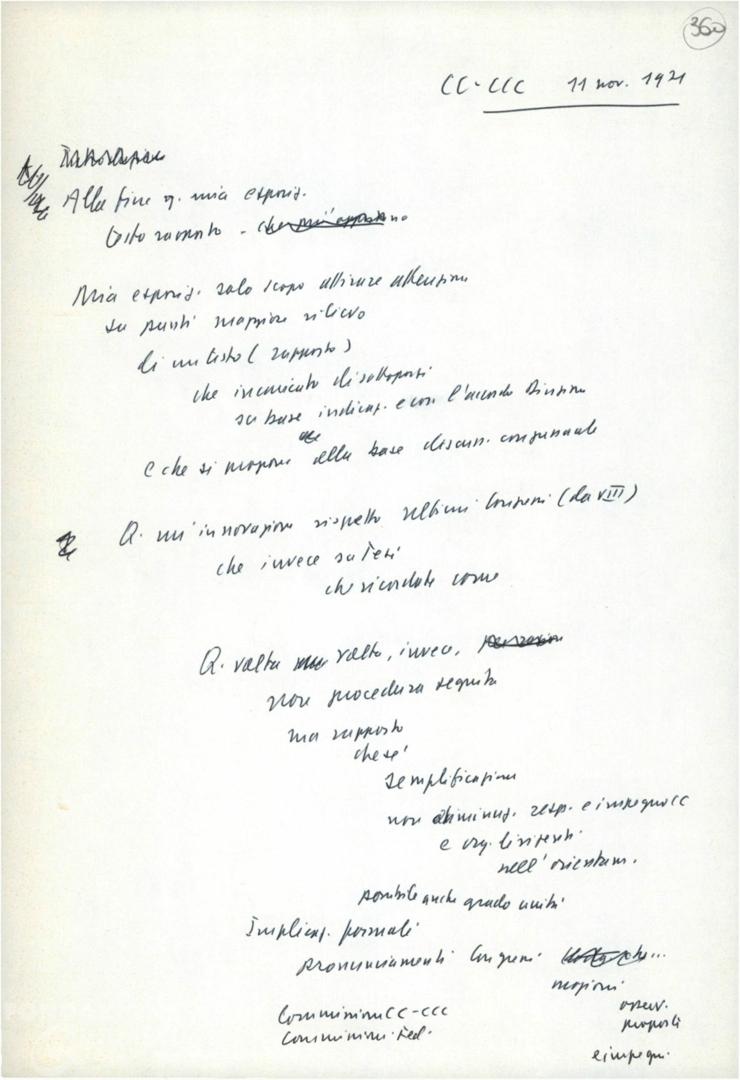 360
CC-CCC 11 nov. 1971
Introduzione
Alla fine q. mia esposiz.
testo rapporto -
Mia esposiz. solo scopo attirare attenzione
su punti maggiore rilievo
di un testo (rapporto)
che incaricato di sottoporvi
su base indicaz. e con l'accordo Direzione
e che si propone alla base discuss. congressuale
Q. un'innovazione rispetto ultimi Congressi (da VIII)
che invece su Tesi
che ricordate come
Q. volta volta, invece,
non procedura seguita
ma rapporto
che è
semplificazione
non diminuz. resp. e impegno CC
e org. dirigenti
nell'orientam.
possibile anche grado unità
Implicaz. formali
pronunciamenti Congressi
mozioni
osserv.
proposti
Commissioni CC-CCC
Commissioni Fed.
e impegni.